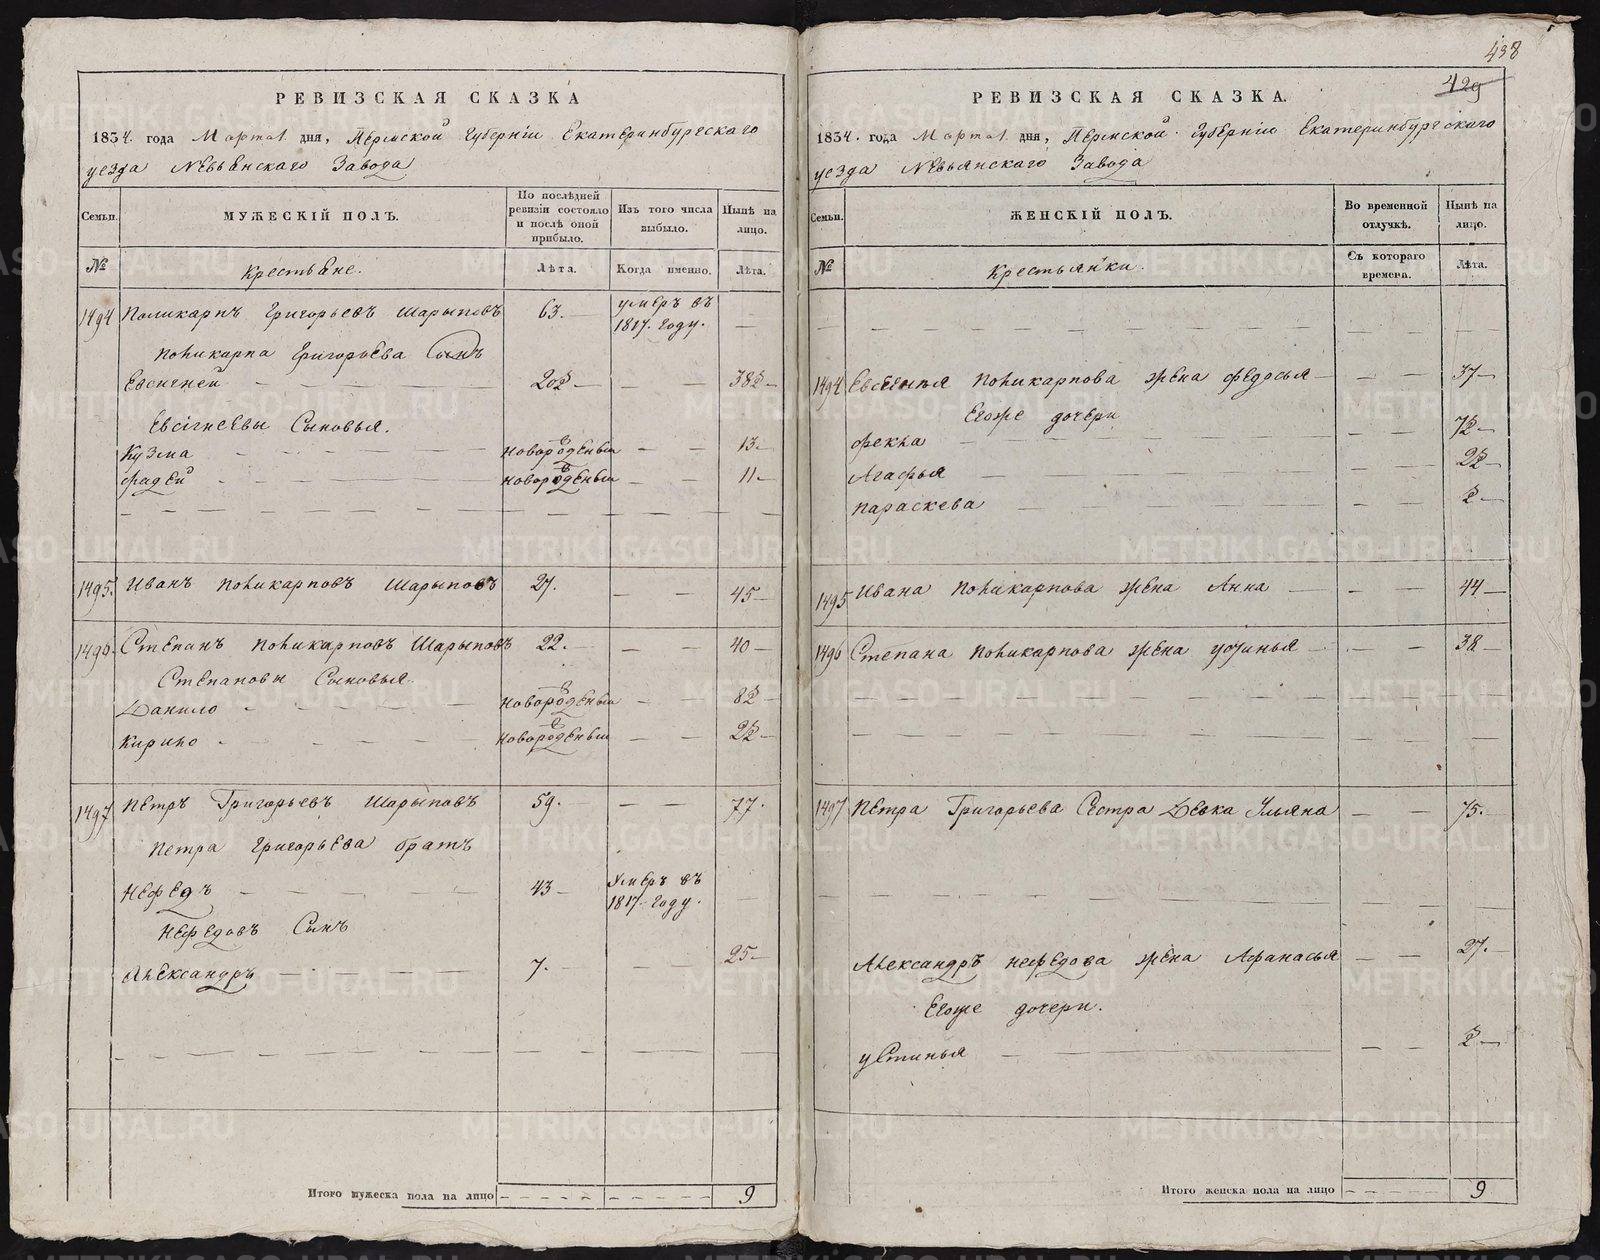 438
429
РЕВИЗСКАЯ СКАЗКА
1834. года Марта 1 дня, Пермской Губерніи Екатеринбургскаго
уезда Невьянскаго Завода
Семьи.
МУЖЕСКІЙ ПОЛЪ.
По послѣдней ревизіи состояло и послѣ оной прибыло.
Изъ того числа выбыло.
Нынѣ на лицо.
№
Крестьяне.
Лѣта.
Когда именно.
Лѣта.
1494 Поликарпъ Григорьевъ Шарыповъ 63. умеръ въ 1817. году.
Поликарпа Григорьева Сынъ
Евсигней
Евсігнеевы Сыновья.
Кузма новорожденныи 13.
Фадей новорожденныи 11
1495. Иванъ Поликарповъ Шарыповъ 27. 45
1496. Степанъ Поликарповъ Шарыповъ 22. 40
Степановы Сыновья
Данило новорожденныи
Кирило новорожденныи
1497 Петръ Григорьевъ Шарыповъ 59. 77.
Петра Григорьева братъ
Нефедъ 43 Умеръ въ 1817. году.
Нефедовъ Сынъ
Александръ 7. 25
Итого мужеска пола на лицо 9
РЕВИЗСКАЯ СКАЗКА.
1834. года Марта 1 дня, Пермской Губерніи Екатеринбургскаго
уезда Невьянскаго Завода
Семьи.
ЖЕНСКІЙ ПОЛЪ.
Во временной отлучкѣ.
Нынѣ на лицо.
№
Крестьянки.
Съ котораго времени.
Лѣта.
1494 Поликарпова жена Федосья 37
Егоже дочери
Фекла
Агафья
Параскева
1495 Ивана Поликарпова жена Анна 44
1496 Степана Поликарпова жена 38
1497 Петра Григорьева Сестра Девка Ульяна 75.
Александръ Нефедова жена Афанасья 27.
Егоже дочери.
Устинья
Итого женска пола на лицо 9
METRIKI.GASO-URAL.RU